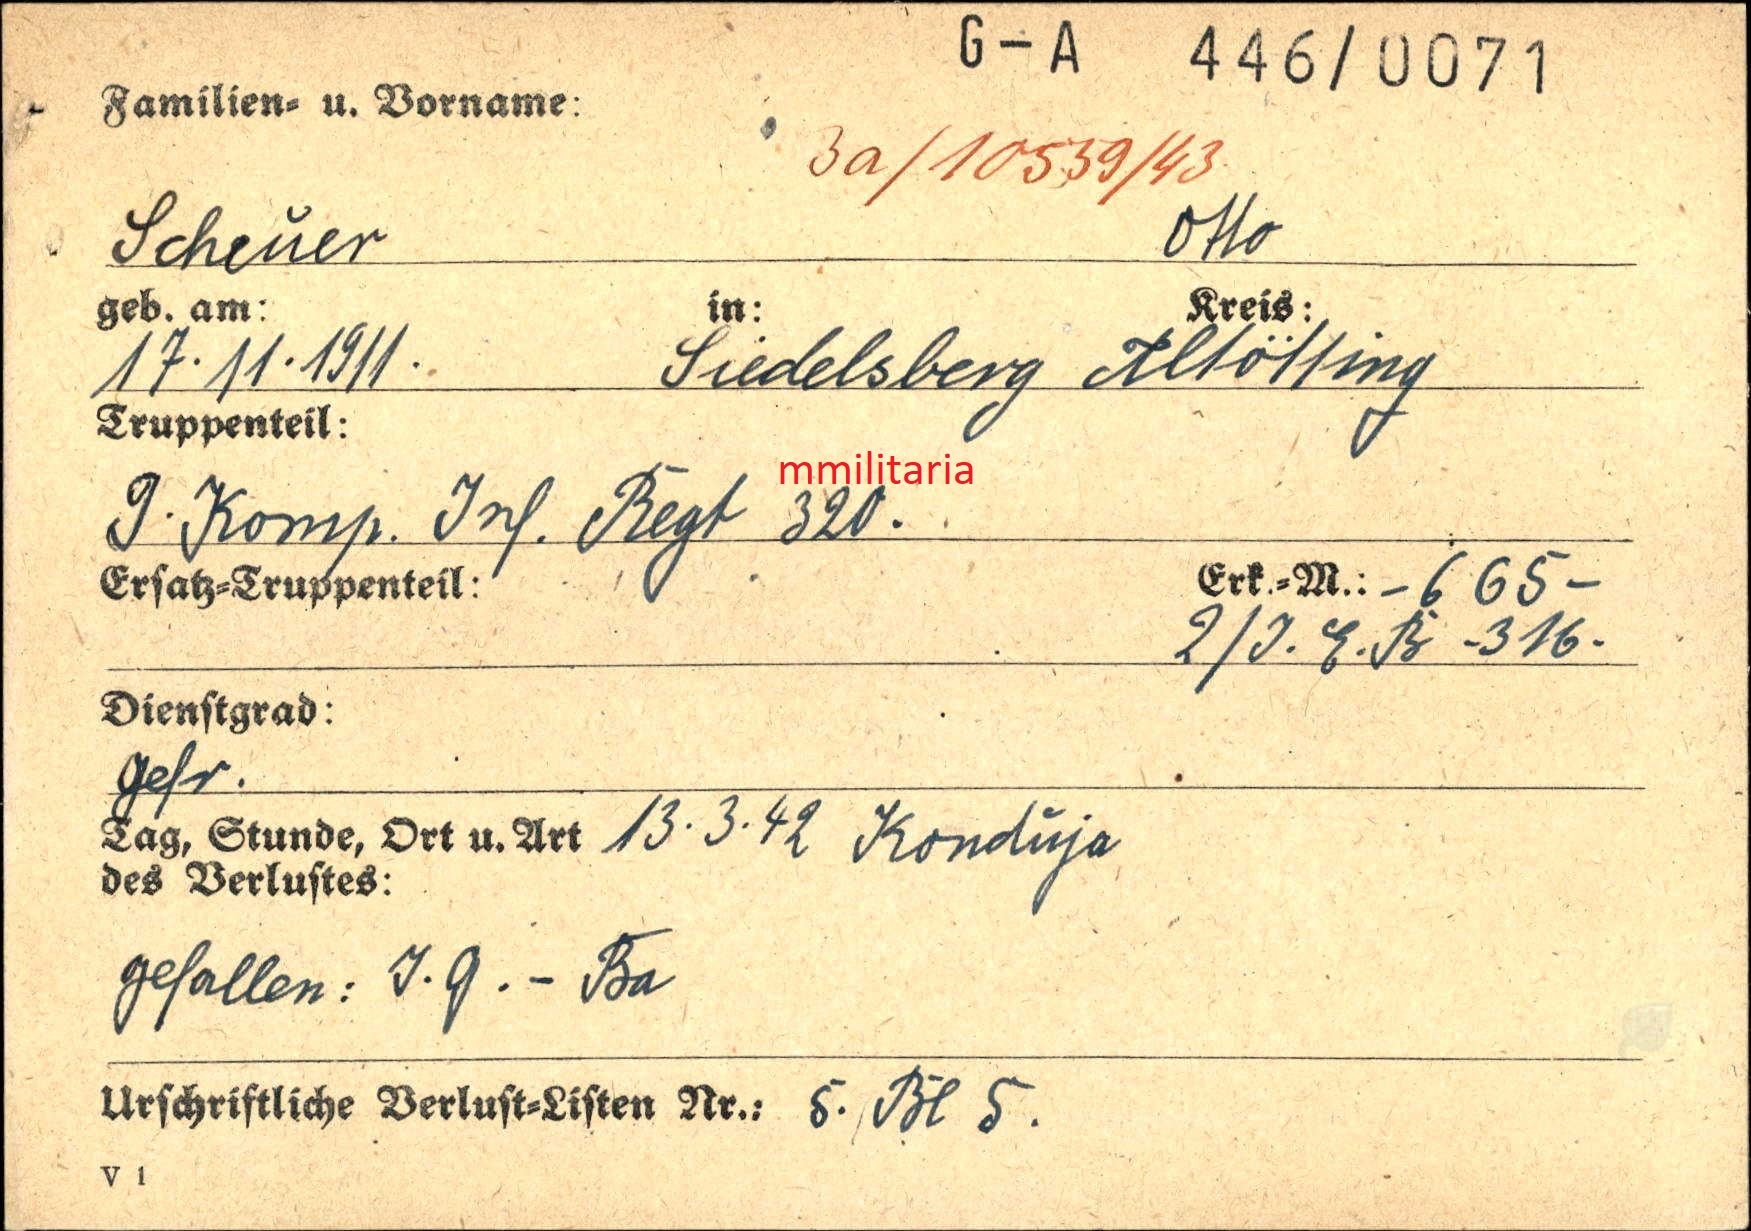 G-A 446/0071
Familien- u. Vorname:
3a/10539/43
Scheuer Otto
geb. am: in: Kreis:
17.11.1911. Siedelsberg Altötting
Truppenteil:
mmilitaria
9. Komp. Inf. Regt 320.
Ersatz-Truppenteil: Erk.-M.: -665-
2/J.E.B -316-
Dienstgrad:
Gefr.
Tag, Stunde, Ort u. Art 13.3.42 Konduja
des Verlustes:
gefallen: J.G. - Ba
Urschriftliche Verlust-Listen Nr.: 5. Bl 5.
V 1